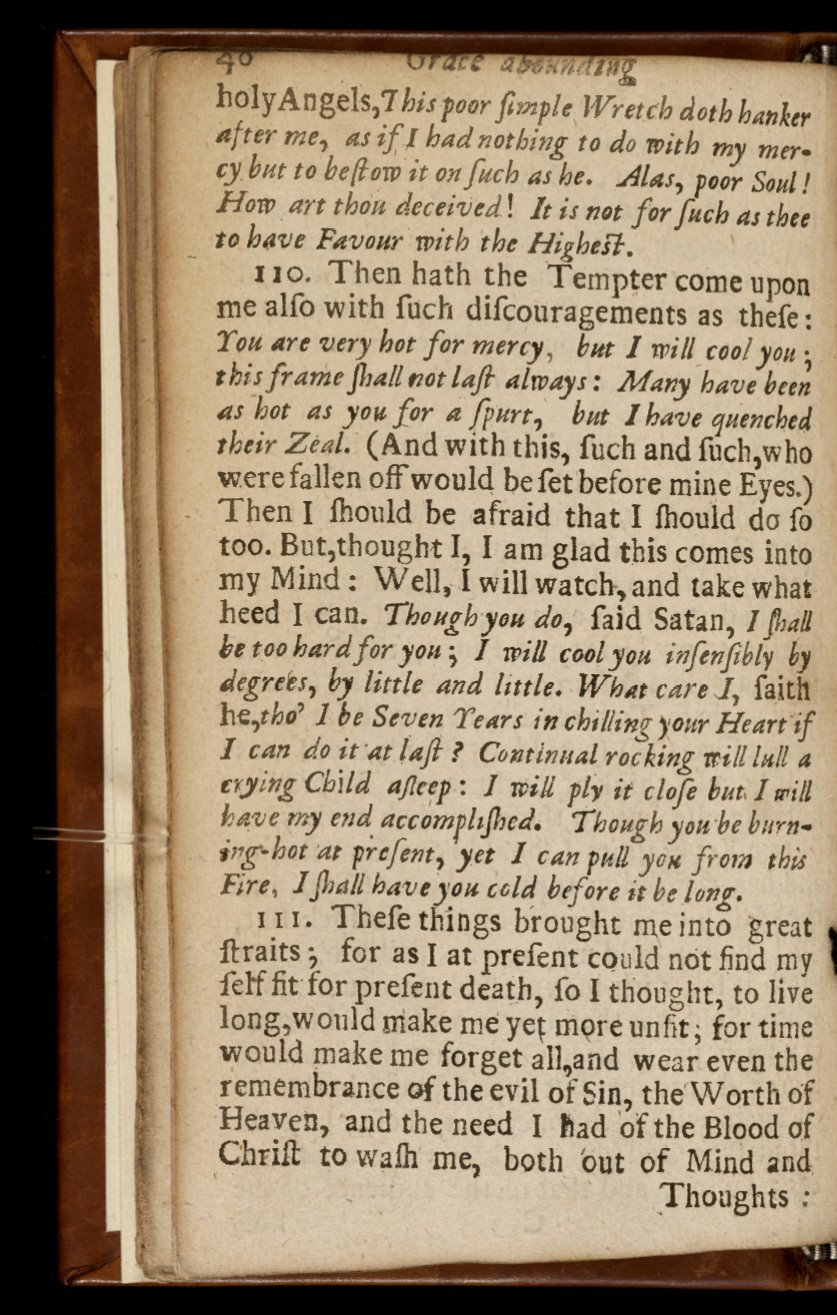 40 Grace abounding
holy Angels, This poor ſimple Wretch doth hanker
after me, as if I had nothing to do with my mer-
cy but to beſtow it on ſuch as he. Alas, poor Soul!
How art thou deceived! It is not for ſuch as thee
to have Favour with the Higheſt.
110. Then hath the Tempter come upon
me alſo with ſuch diſcouragements as theſe:
You are very hot for mercy, but I will cool you;
this frame ſhall not laſt always: Many have been
as hot as you for a ſpurt, but I have quenched
their Zeal. (And with this, ſuch and ſuch, who
were fallen off would be ſet before mine Eyes.)
Then I ſhould be afraid that I ſhould do ſo
too. But, thought I, I am glad this comes into
my Mind: Well, I will watch, and take what
heed I can. Though you do, ſaid Satan, I ſhall
be too hard for you; I will cool you inſenſibly by
degrees, by little and little. What care I, ſaith
he, tho' I be Seven Years in chilling your Heart if
I can do it at laſt? Continual rocking will lull a
crying Child aſleep: I will ply it cloſe but I will
have my end accompliſhed. Though you be burn-
ing-hot at preſent, yet I can pull you from this
Fire, I ſhall have you cold before it be long.
111. Theſe things brought me into great
ſtraits; for as I at preſent could not find my
ſelf fit for preſent death, ſo I thought, to live
long, would make me yet more unfit; for time
would make me forget all, and wear even the
remembrance of the evil of Sin, the Worth of
Heaven, and the need I had of the Blood of
Chriſt to waſh me, both out of Mind and
Thoughts: